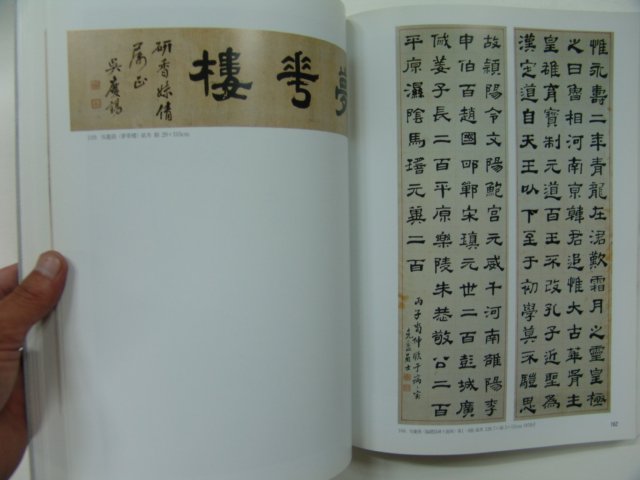 惟永壽二年青龍在涒歎霜月之靈皇極
之日魯相河南京韓君追惟大古華胥生
皇雄育寶制元道百王不改孔子近聖為
漢定道自天王以下至于初學莫不驥思
故穎陽令文陽鮑宮元威千河南雒陽李
申伯百趙國邯鄲宋瑱元世二百彭城廣
戚姜子長二百平原樂陵朱恭敬公二百
平原濕陰馬瑤元冀二百
丙子
162
夢華樓
研香姝倩
屬正
吳